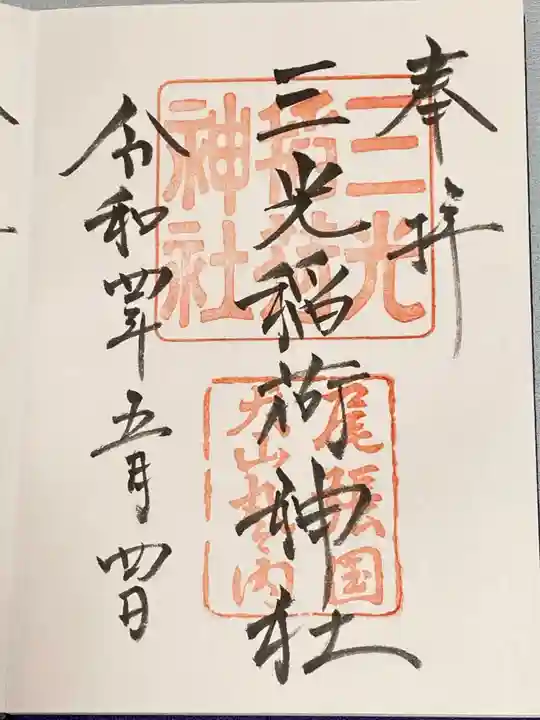 奉拝
三光稲荷神社
令和四年五月四日
三光
稲荷
神社
尾張国
犬山城内